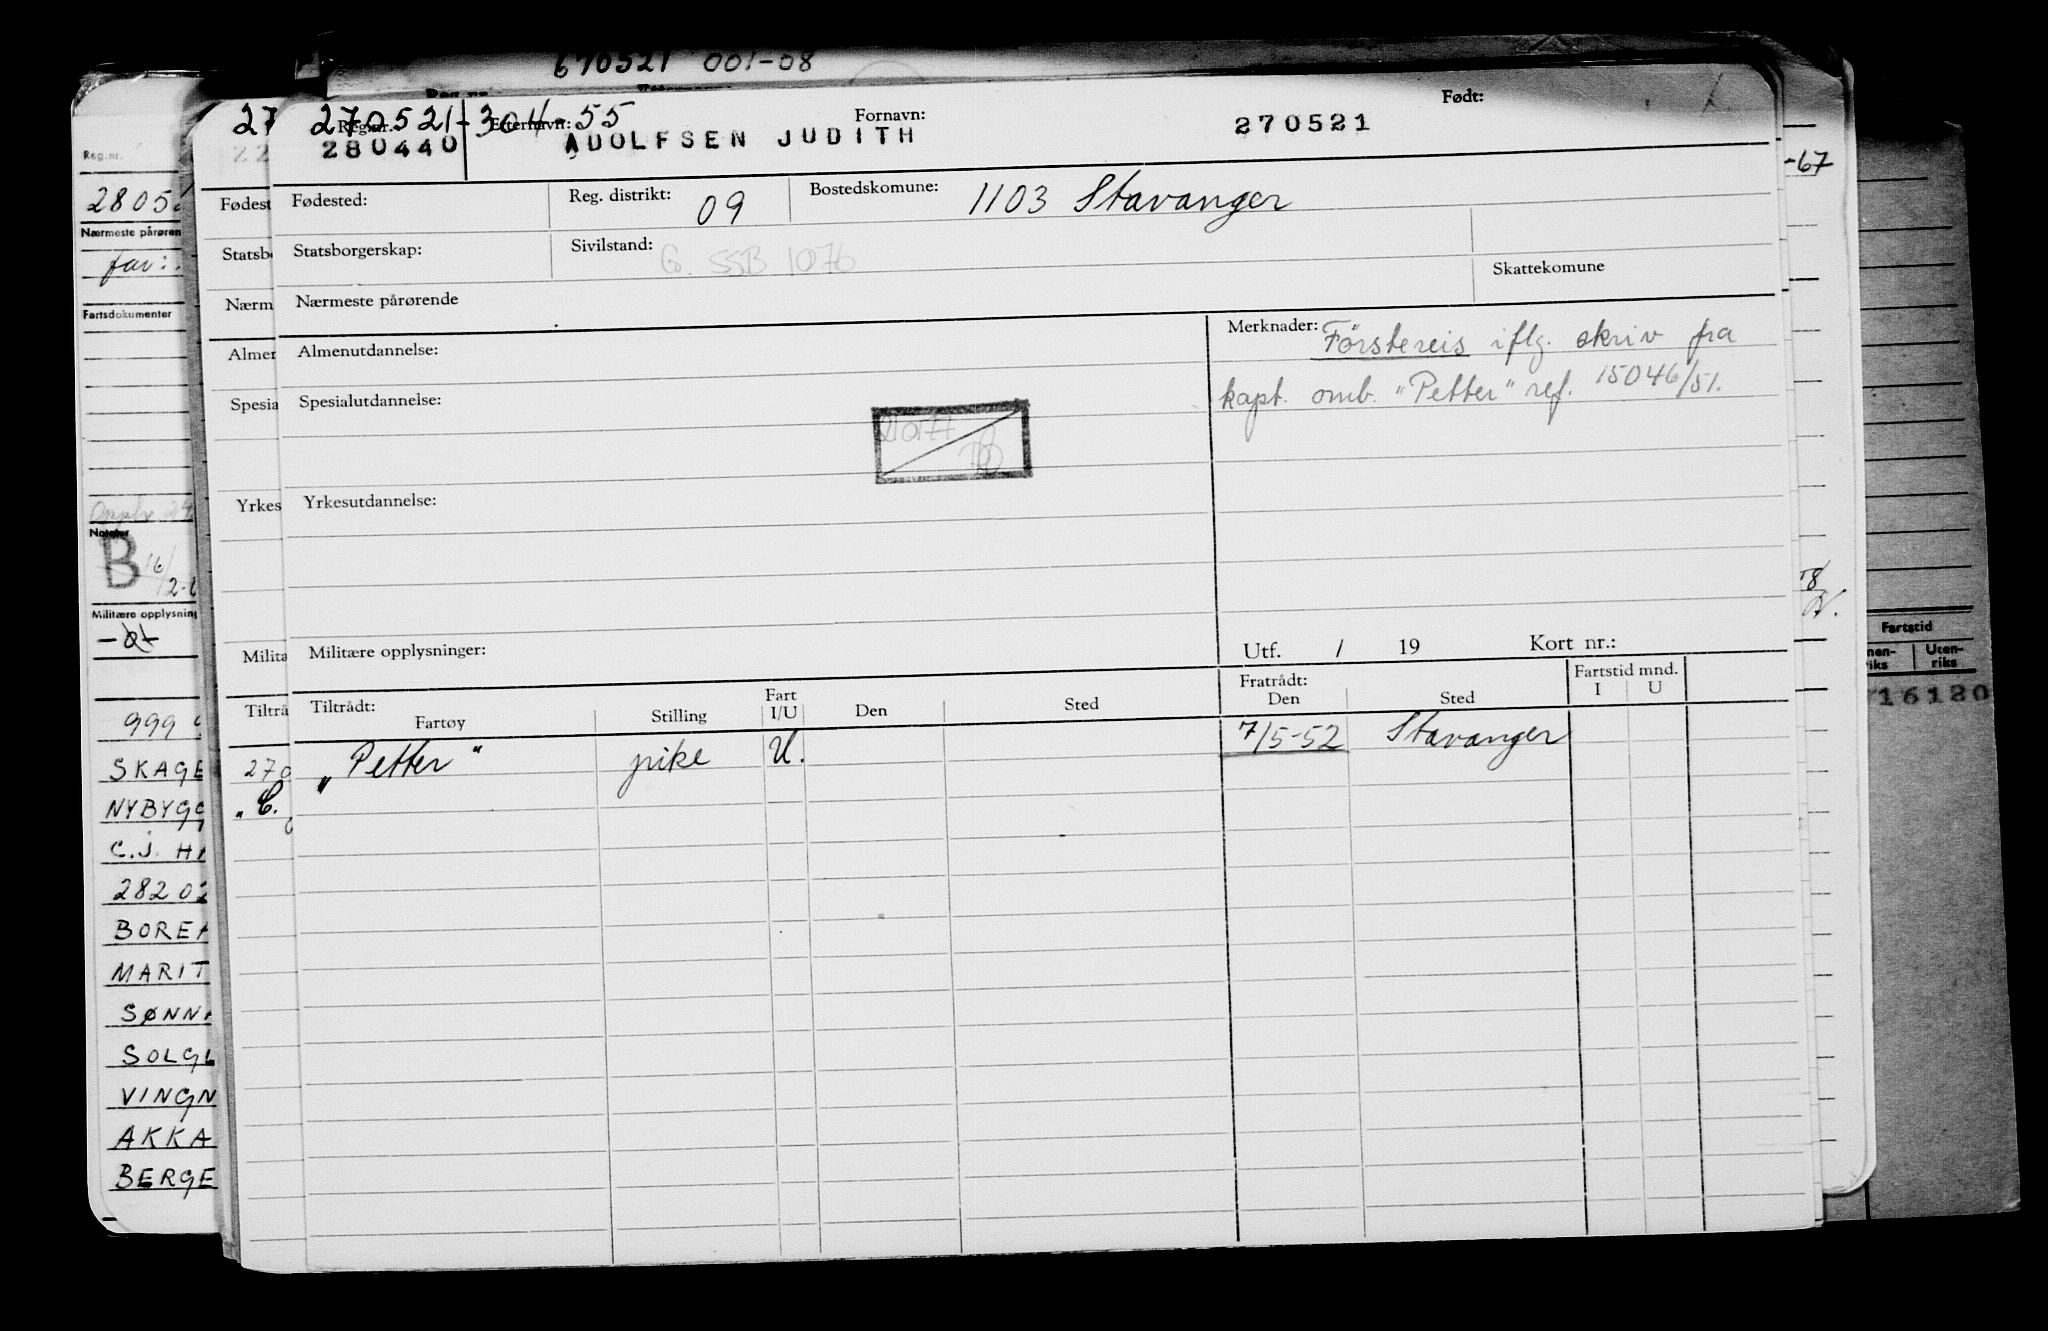 670521 001-08
27 270521-304-55
Reg.nr. Etternavn: Fornavn: Født:
280440 ADOLFSEN JUDITH 270521
Fødested: Reg. distrikt: 09 Bostedskomune: 1103 Stavanger
Statsborgerskap: Sivilstand: G. SSB 1076
Skattekomune
Nærmeste pårørende
Almenutdannelse: Merknader: Förstereis iflg. skriv fra
Spesialutdannelse: kapt. omb. "Petter" ref. 15046/51.
Yrkesutdannelse:
Militære opplysninger: Utf. / 19 Kort nr.:
Tiltrådt: Fart Fratrådt: Fartstid mnd.
Fartøy Stilling I/U Den Sted Den Sted I U
"Petter" pike U. 7/5-52 Stavanger
Reg.nr.
2805
Nærmeste pårøren
far:
Fartsdokumenter
Notater
B 16/2-6
Militære opplysning
999
SKAGE
NYBYGG
C.J. HA
28202
BOREA
MARIT
SØNNA
SOLGL
VINGN
AKKA
BERGE
Fødest
Statsb
Nærm
Almen
Spesia
Yrkes
Milita
Tiltrå
270
"C.
-67
Fartstid
Uten-
riks
16120